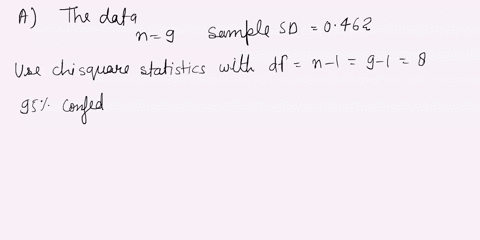 A) The data
n=9 Sample SD = 0.462
Use chisquare statistics with df = n-1 = 9-1 = 8
95% Confed